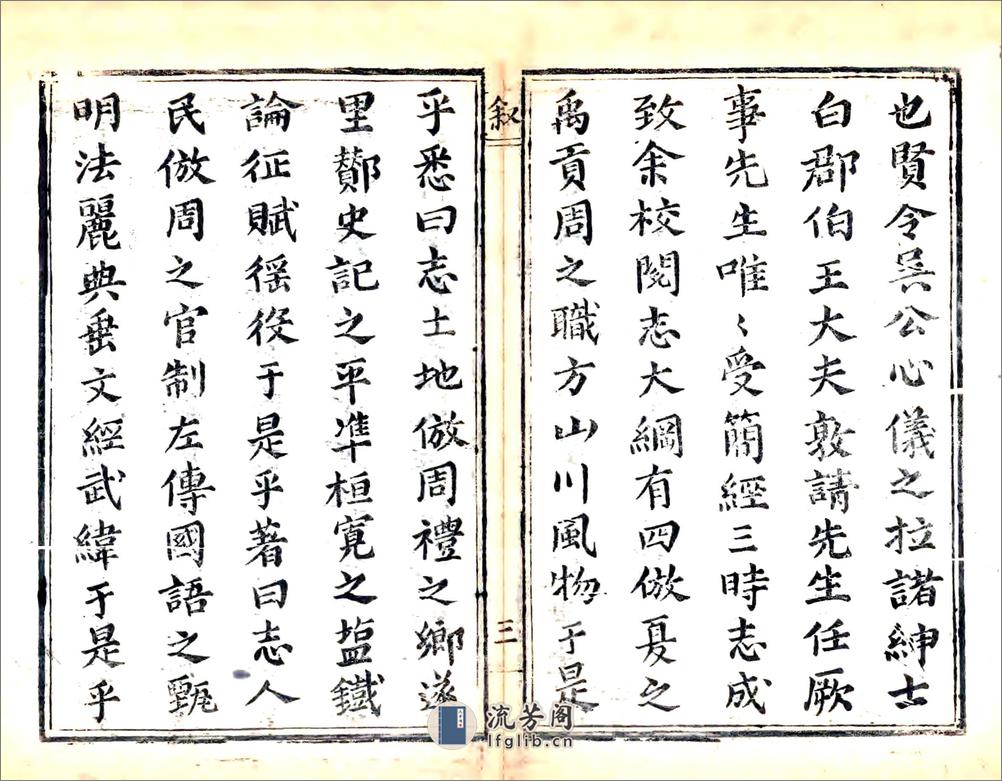 也賢令吳公心儀之拉諸紳士
白郡伯王大夫敦請先生任厥
事先生唯〻受簡經三時志成
致余校閱志大綱有四倣夏之
禹貢周之職方山川風物于是
叙
三
乎悉曰志土地倣周禮之鄉遂
里酇史記之平準桓寬之塩鐵
論征賦徭役于是乎著曰志人
民倣周之官制左傳國語之甄
明法麗典垂文經武緯于是乎
流芳阁
lfglib.cn